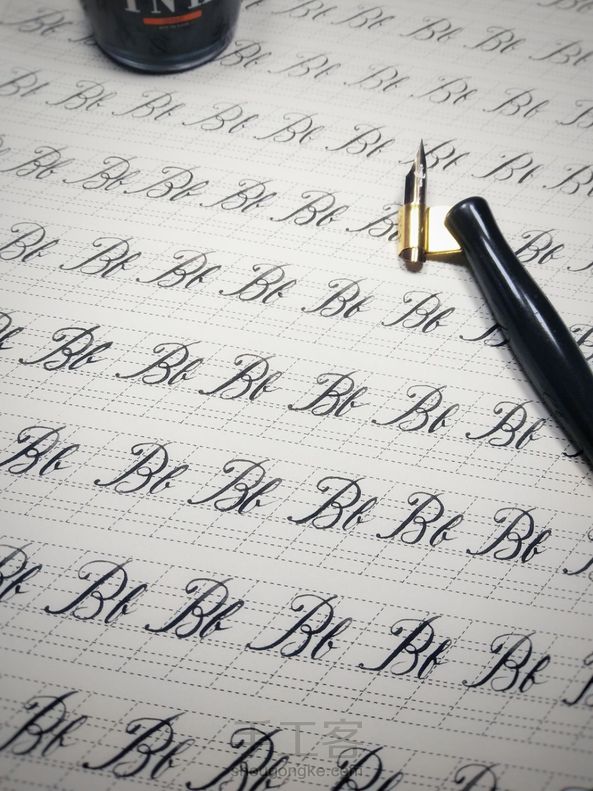 INK
Bb Bb Bb Bb
Bb Bb Bb Bb Bb
Bb Bb Bb Bb Bb Bb Bb Bb
Bb Bb Bb Bb Bb Bb Bb
Bb Bb Bb Bb Bb Bb
Bb Bb Bb Bb Bb Bb
Bb Bb Bb Bb Bb Bb
Bb Bb Bb Bb Bb Bb
Bb Bb Bb Bb Bb
手工客
shougongke.com